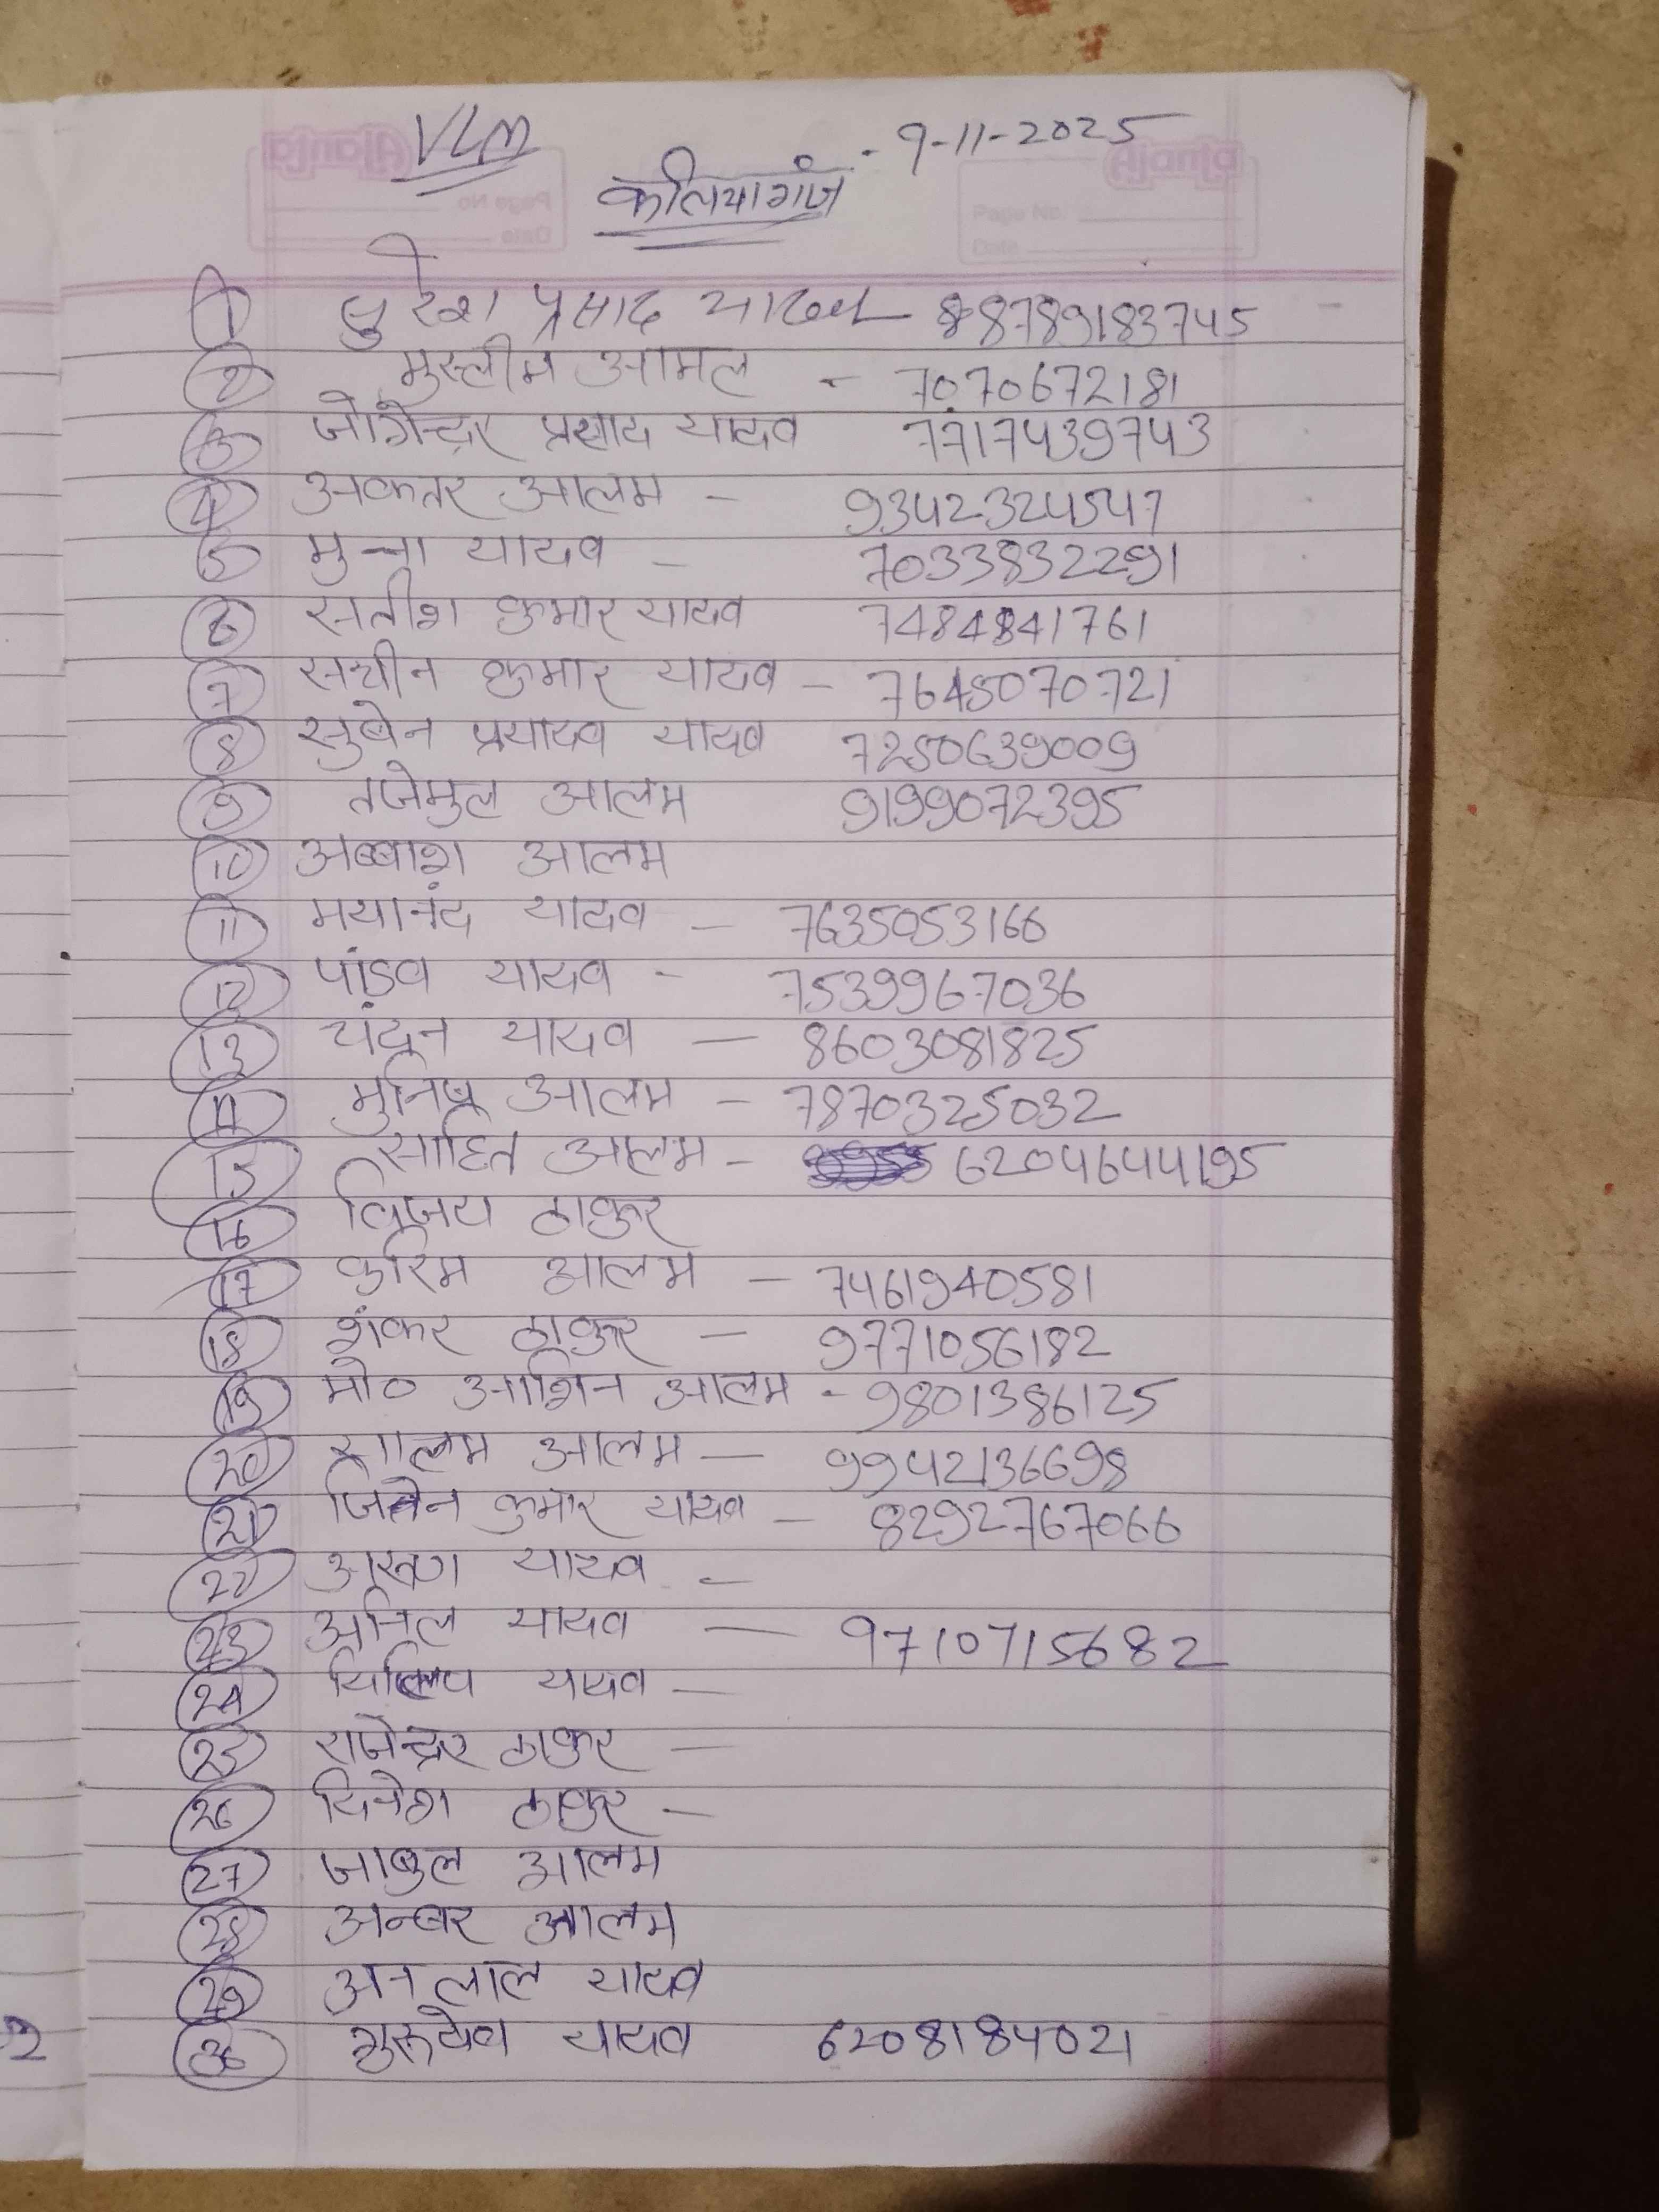 VLM
कलियागंज - 9-11-2025
① सुरेश प्रसाद यादव 8789183745
② मुस्लीम आमल - 7070672181
③ जोगेन्द्रर प्रसाद यादव 7717439743
④ अकतर आलम - 9342324547
⑤ मुन्ना यादव - 7033832291
⑥ सतीश कुमार यादव 7484841761
⑦ सचीन कुमार यादव - 7645070721
⑧ सुबेन यादव 7250639009
⑨ तजेमुल आलम 9199072395
⑩ अब्बाश आलम
⑪ मयानंद यादव - 7635053166
⑫ पांडव यादव - 7539967036
⑬ चंदन यादव - 8603081825
⑭ आलम - 7870325032
⑮ आलम - 6204644195
⑯ विजय ठाकुर
⑰ करिम आलम - 7461940581
⑱ शंकर ठाकुर - 9771056182
⑲ मो० आशिन आलम - 9801386125
⑳ सालम आलम - 9942136698
㉑ जितेन कुमार यादव - 8292767066
㉒ अरुण यादव -
㉓ अनिल यादव - 9710715682
㉔ दिलिप यादव -
㉕ राजेन्द्रर ठाकुर -
㉖ दिनेश ठाकुर -
㉗ जाबुल आलम
㉘ आलम
㉙ अन लाल यादव
㉚ गुरूदेव यादव 6208184021
2